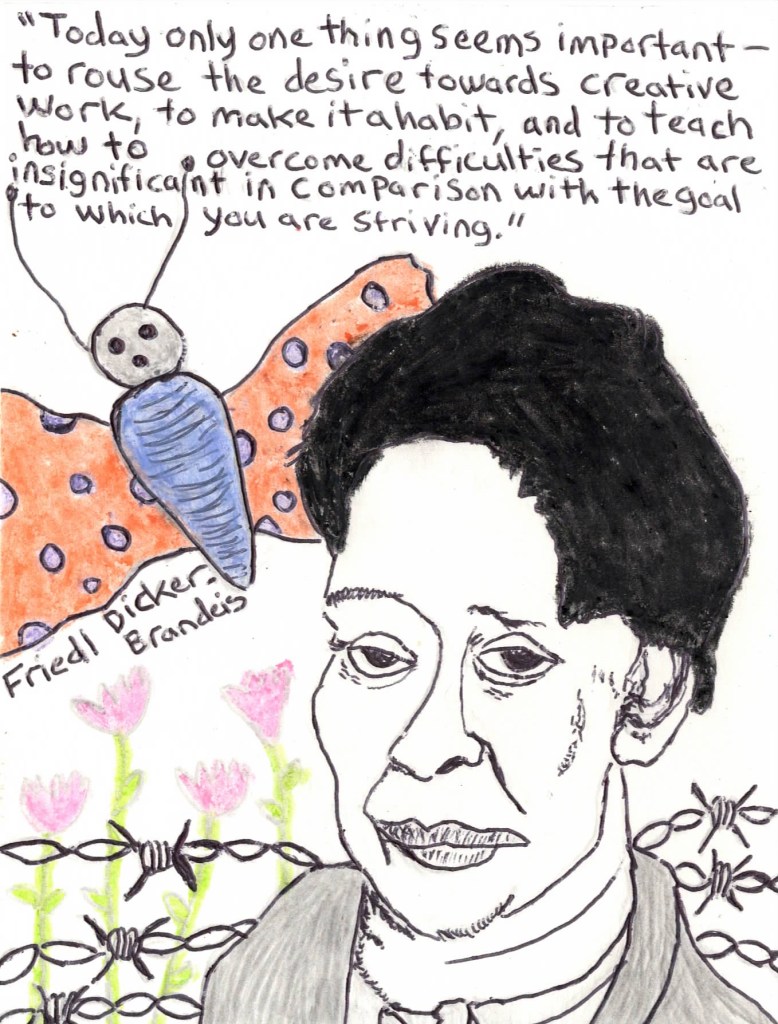 "Today only one thing seems important—
to rouse the desire towards creative
work, to make it a habit, and to teach
how to overcome difficulties that are
insignificant in comparison with the goal
to which you are striving."
Friedl Dicker-
Brandeis